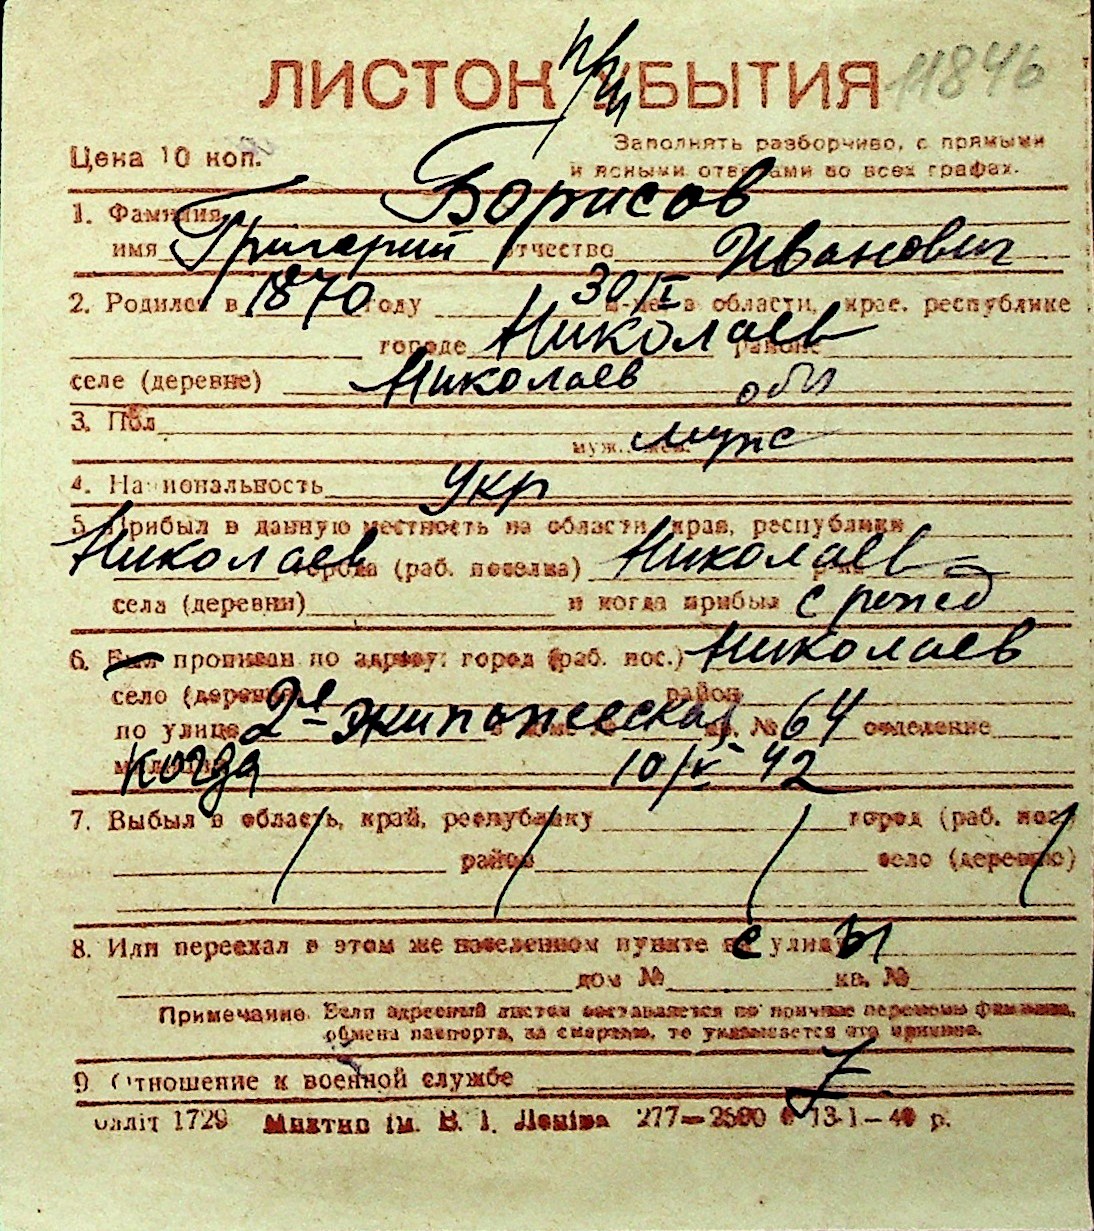 ЛИСТОК при УБЫТИЯ 11846
Цена 10 коп.
Заполнять разборчиво, с прямыми
и ясными ответами во всех графах.
1. Фамилия Борисов
имя Григорий отчество Иванович
2. Родился в 1870 году 30/I м-це в области, крае, республике
городе Николаев районе
селе (деревне) Николаев обл
3. Пол муж., жен. муж
4. Национальность Укр
5. Прибыл в данную местность из области, края, республики
Николаев города (раб. поселка) Николаев
села (деревни) и когда прибыл с рожд
6. Был прописан по адресу: город (раб. пос.) Николаев
село (деревня) район
по улице 2я Экипажеская кв. № 64 отделение
милиции когда 10/V 42
7. Выбыл в область, край, республику город (раб. пос.)
район село (деревню)
8. Или переехал в этом же населенном пункте с улицы
дом № кв. №
Примечание. Если адресный листок составляется по причине перемены фамилии,
обмена паспорта, за смертью, то указывается эта причина.
9. Отношение к военной службе
Обліт 1729 Миктип ім. В. І. Леніна 277—2500 13-1—40 р.